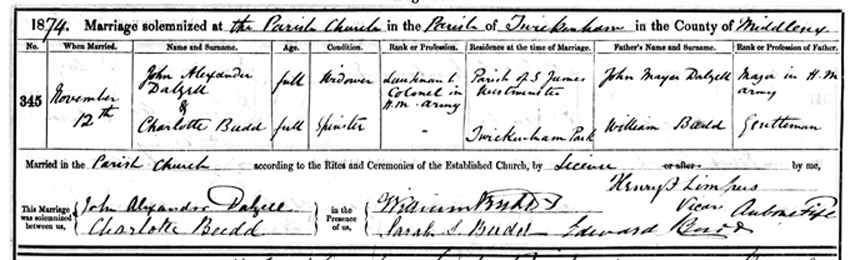 1874. Marriage solemnized at the Parish Church in the Parish of Twickenham in the County of Middlesex
No. When Married. Name and Surname. Age. Condition. Rank or Profession. Residence at the time of Marriage. Father's Name and Surname. Rank or Profession of Father.
345 November 12th John Alexander Dalzell full Widower Lieutenant Colonel in H.M. army Parish of S James Westminster John Mayer Dalzell Major in H.M. army
&
Charlotte Budd full Spinster - Twickenham Park William Budd Gentleman
Married in the Parish Church according to the Rites and Ceremonies of the Established Church, by Licence or after by me,
Henry
Vicar
This Marriage was solemnized between us, John Alexander Dalzell Charlotte Budd in the Presence of us, William Budd Sarah S. Budd Edward Budd Aubone Fife